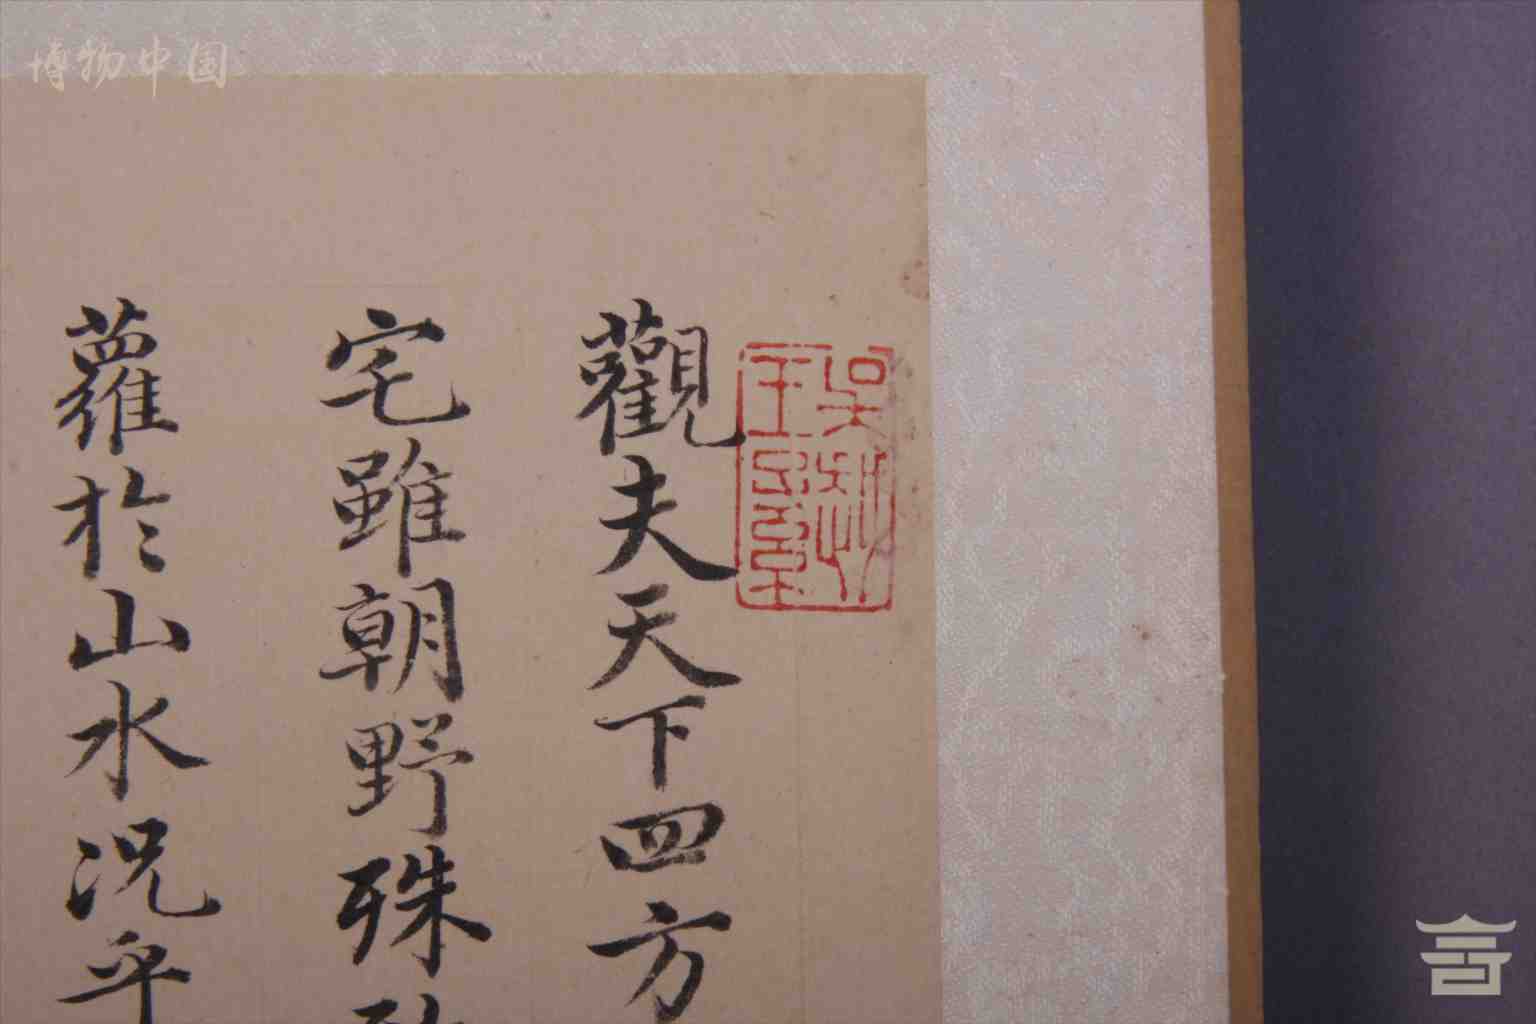 博物中国
觀夫天下四方
宅雖朝野殊
蘿於山水況乎